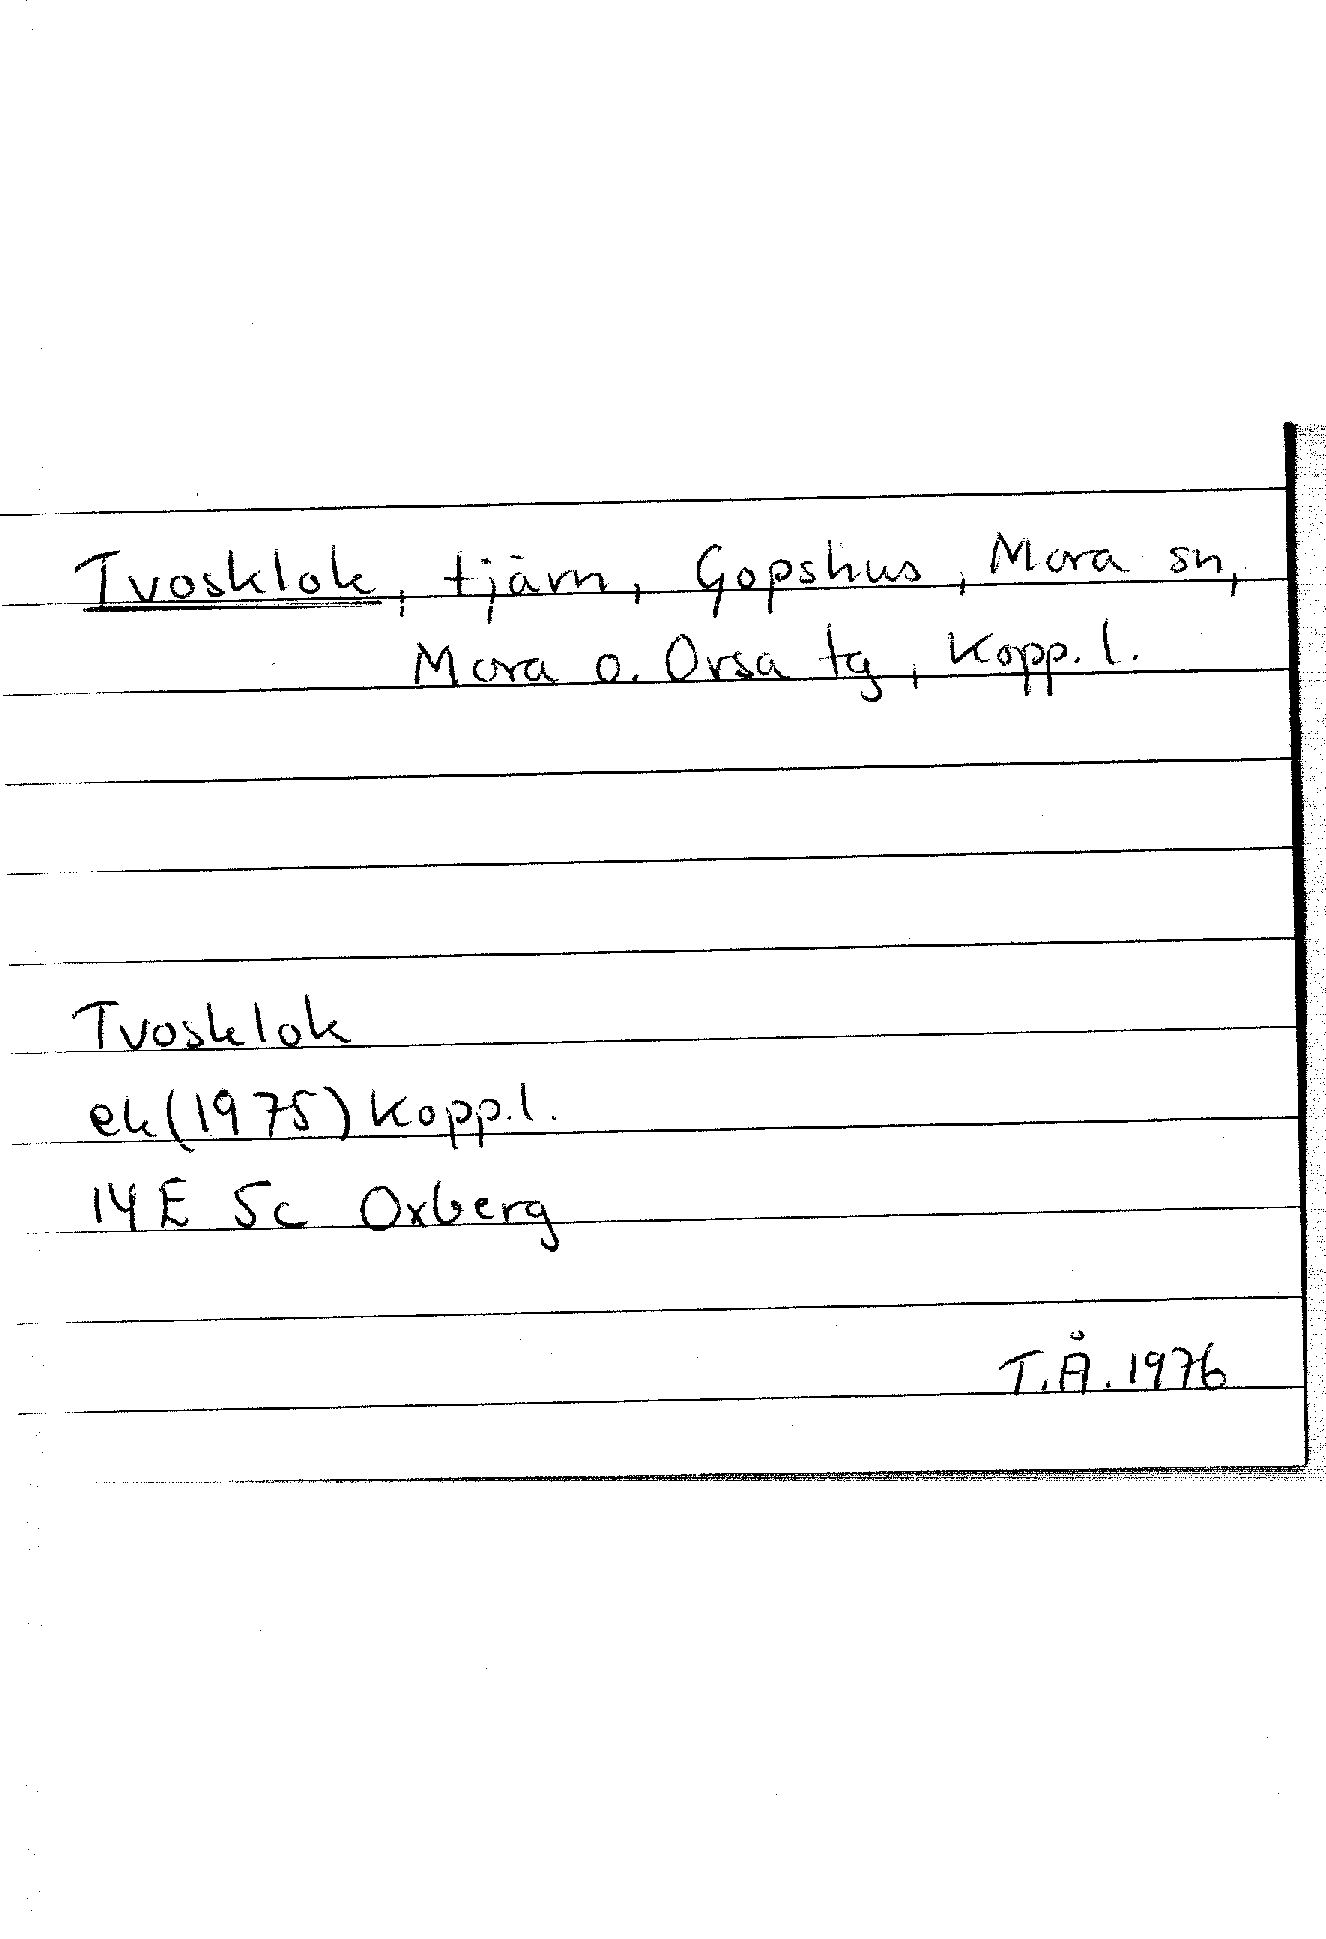 Tvosklok, tjärn, Gopshus, Mora sn,
Mora o. Orsa tg, Kopp. l.
Tvosklok
ek(1975) Kopp.l.
14E 5c Oxberg
T.Å.1976